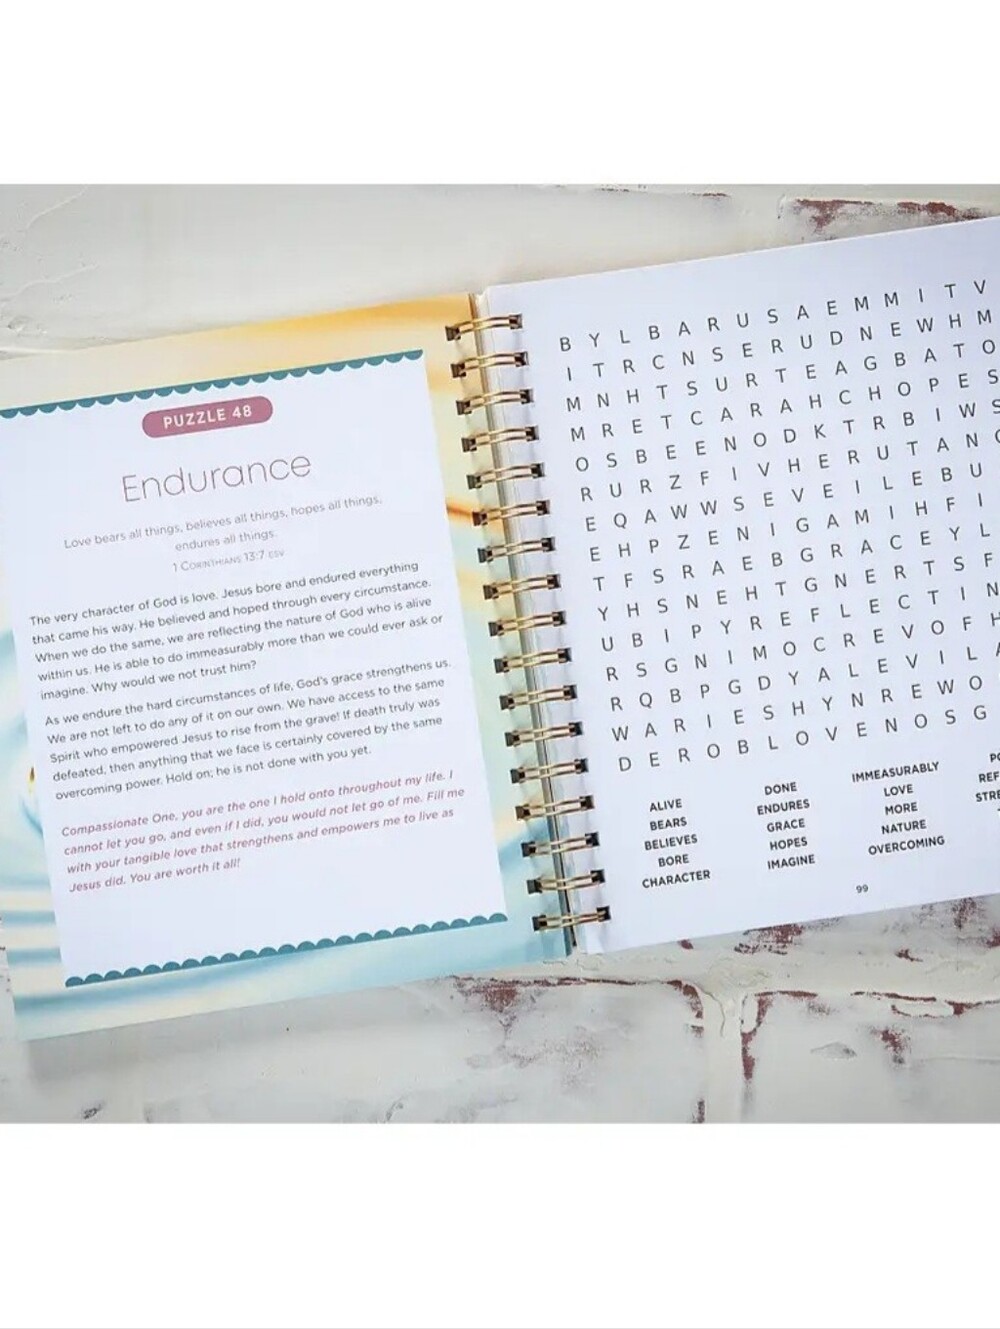 PUZZLE 48
Endurance
Love bears all things, believes all things, hopes all things,
endures all things.
1 CORINTHIANS 13:7 ESV
The very character of God is love. Jesus bore and endured everything
that came his way. He believed and hoped through every circumstance.
When we do the same, we are reflecting the nature of God who is alive
within us. He is able to do immeasurably more than we could ever ask or
imagine. Why would we not trust him?
As we endure the hard circumstances of life, God's grace strengthens us.
We are not left to do any of it on our own. We have access to the same
Spirit who empowered Jesus to rise from the grave! If death truly was
defeated, then anything that we face is certainly covered by the same
overcoming power. Hold on; he is not done with you yet.
Compassionate One, you are the one I hold onto throughout my life. I
cannot let you go, and even if I did, you would not let go of me. Fill me
with your tangible love that strengthens and empowers me to live as
Jesus did. You are worth it all!
B Y L B A R U S A E M M I T V
I T R C N S E R U D N E W H M
M N H T S U R T E A G B A T O
M R E T C A R A H C H O P E S
O S B E E N O D K T R B I W S
R U R Z F I V H E R U T A N
E Q A W W S E V E I L E B U
E H P Z E N I G A M I H F I
T F S R A E B G R A C E Y L
Y H S N E H T G N E R T S F
U B I P Y R E F L E C T I N
R S G N I M O C R E V O F H
R Q B P G D Y A L E V I L A
W A R I E S H Y N R E W O
D E R O B L O V E N O S G
ALIVE
BEARS
BELIEVES
BORE
CHARACTER
DONE
ENDURES
GRACE
HOPES
IMAGINE
IMMEASURABLY
LOVE
MORE
NATURE
OVERCOMING
99